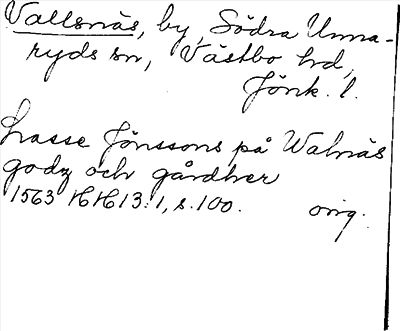 Vallsnäs, by, Södra Unna-
ryds sn, Västbo hd,
Jönk. l.
Lasse Jönssons på Walnäs
godz och gårdher
1563 HH 13:1, s. 100. orig.